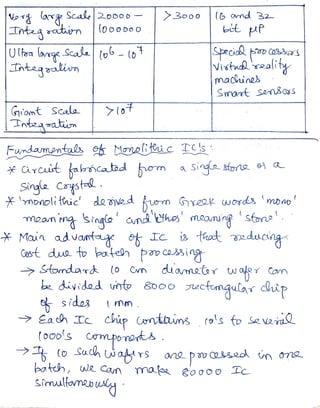 Very large Scale 20000 - >3000 16 and 32
Integration 1000000 bit μP
Ultra large Scale 10⁶ - 10⁷ Special processors
Integration Virtual reality
machines
Smart sensors
Giant Scale >10⁷
Integration
Fundamentals of Monolithic IC's:
* Circuit fabricated from a single stone or a
Single Crystal.
* 'monolithic' derived from Greek words 'mono'
meaning 'single' and 'lithos' meaning 'stone'.
* Main advantage of IC is that reducing
Cost due to batch processing
→ Standard 10 cm diameter wafer can
be divided into 8000 rectangular chip
of sides 1 mm.
→ Each IC chip contains 10's to several
1000's components.
→ If 10 such wafers are processed in one
batch, we can make 80000 IC
simultaneously.